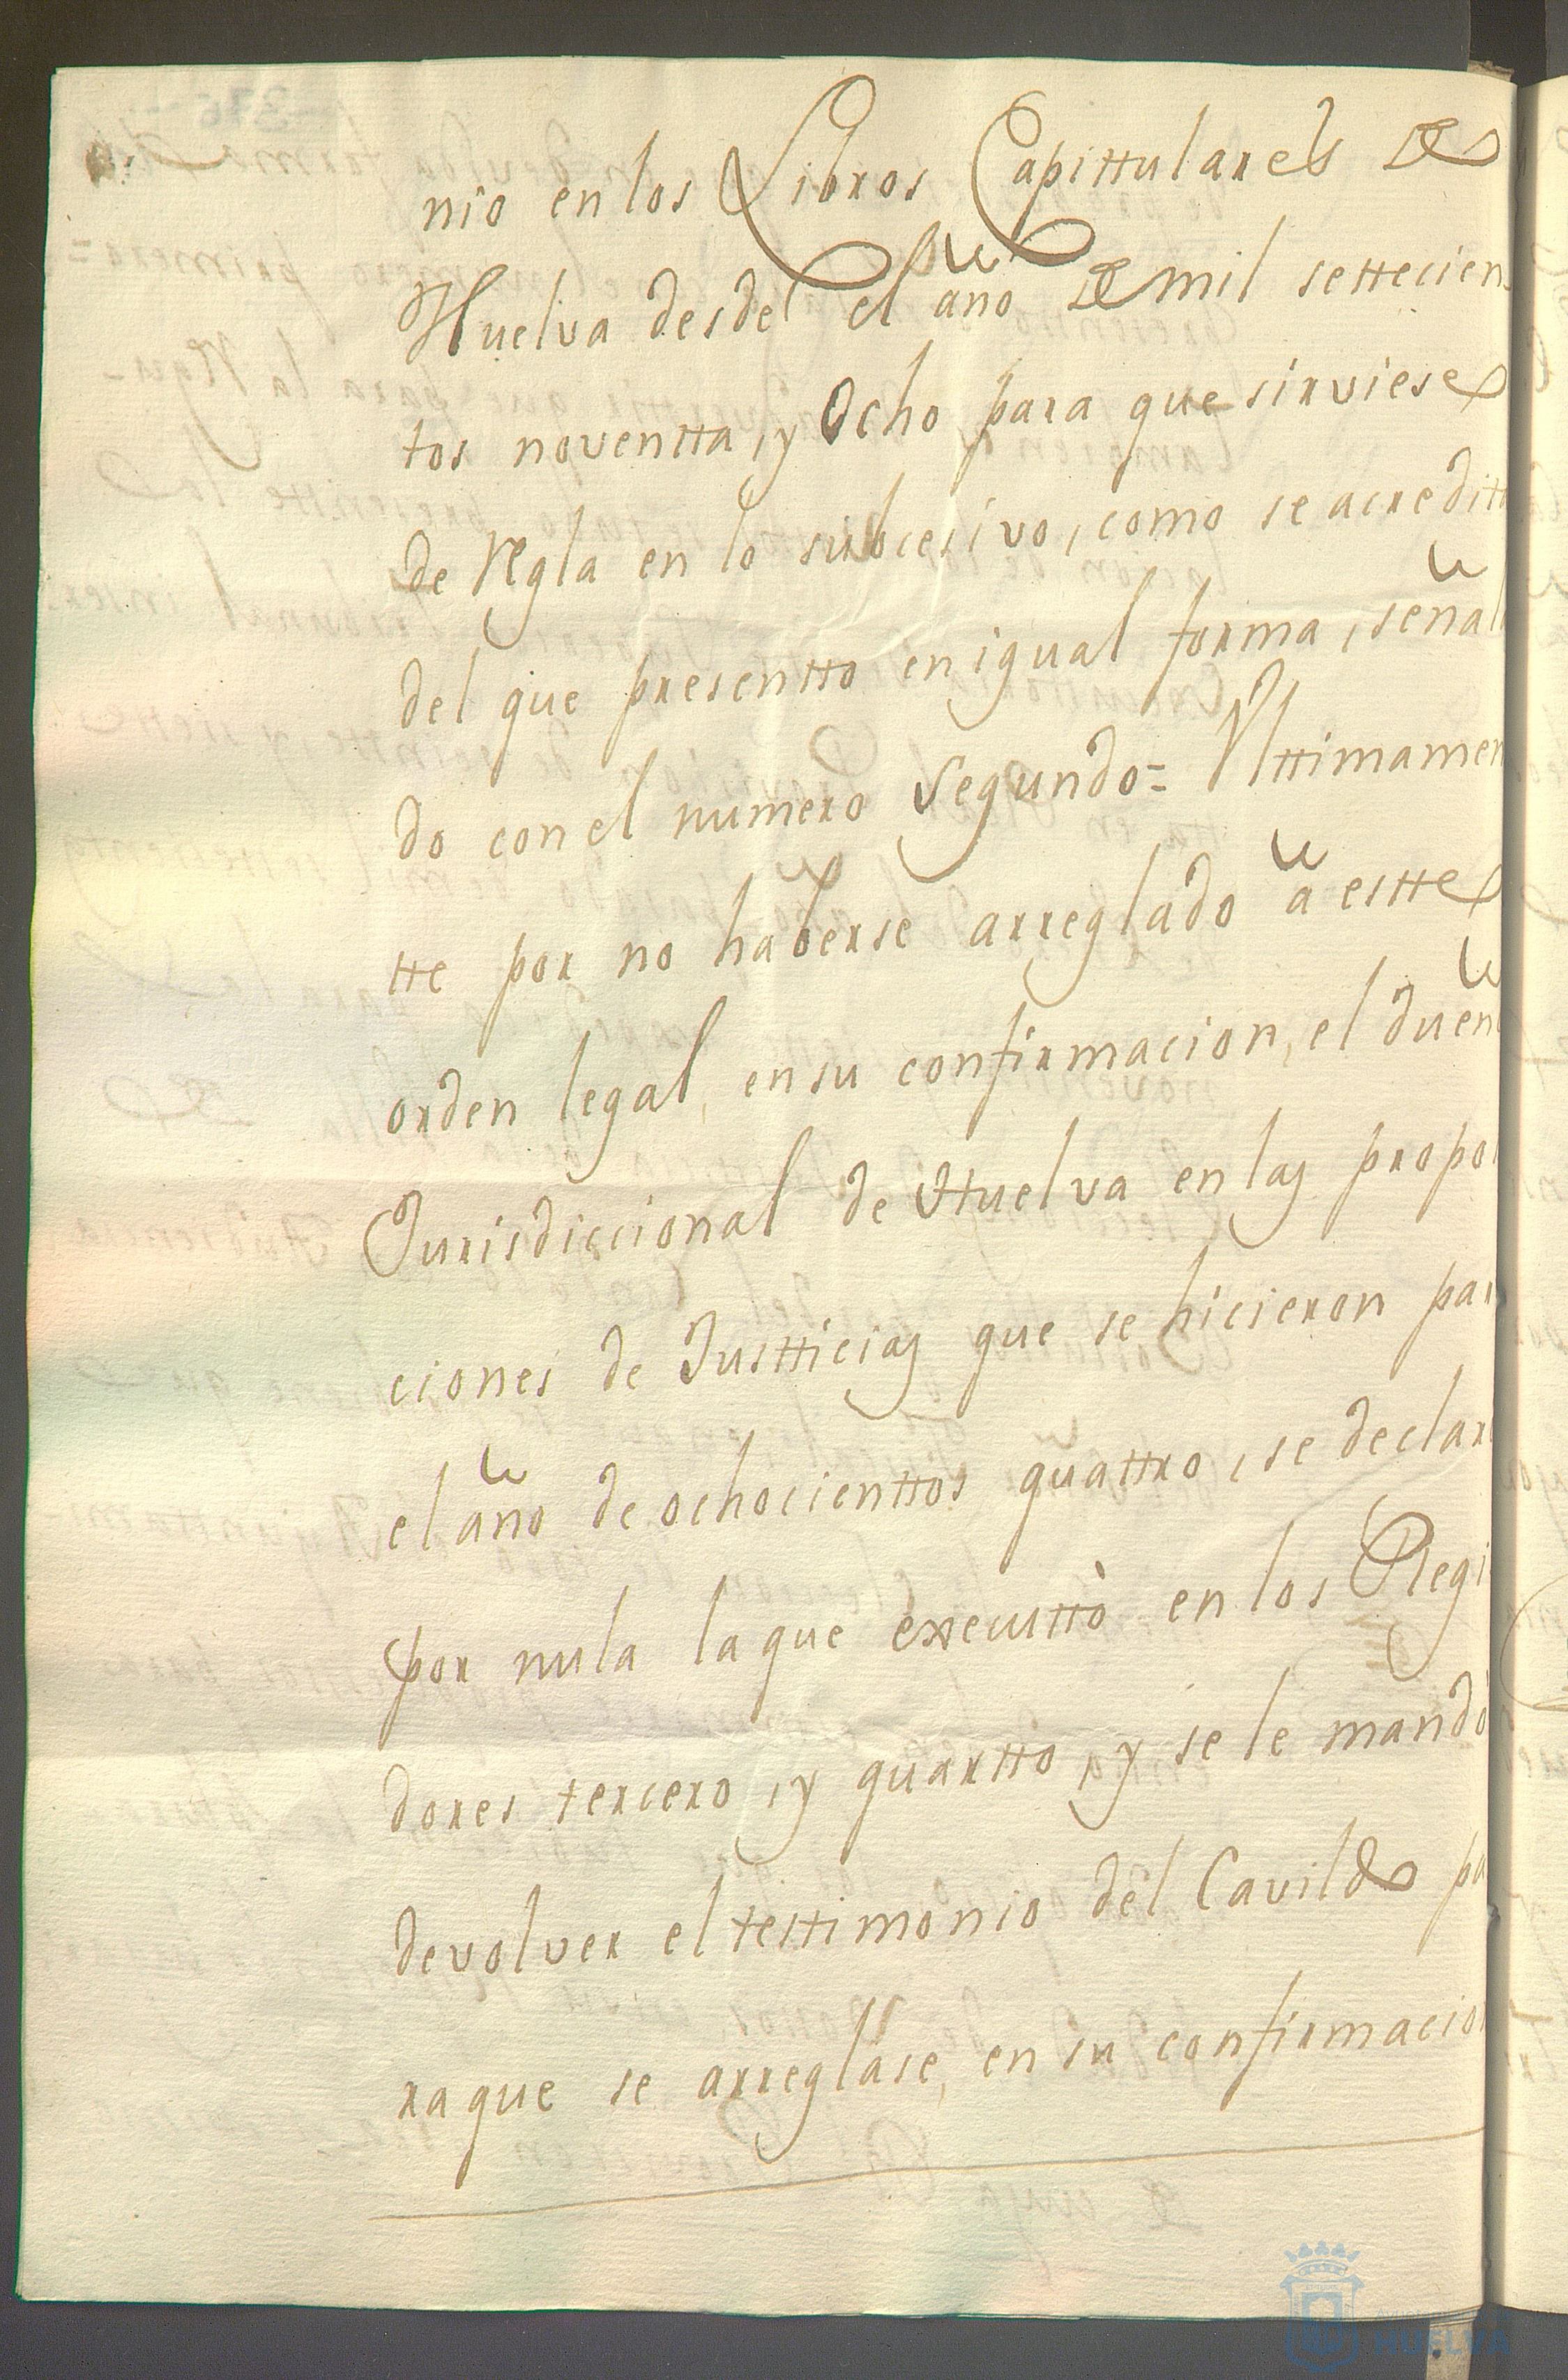 nio en los Libros Capittulares de
Huelva desde el año de mil settecien
tos noventta, y Ocho para que sirviese
de Regla en lo subcesivo, como se acreditta
del que presentto en igual forma, señal
do con el numero Segundo= Ulttimamen
tte por no haberse arreglado ã estte
orden legal, en su confirmacion, el dueñ
Jurisdiccional de Huelva en las propo
ciones de Justticias que se hicieron par
el año de ochocienttos quattro, se declar
por nula la que executtò en los Regi
dores tercero, y quartto, y se le mandò
devolver el testtimonio del Cavildo pa
ra que se arreglase, en su confirmacion
HUELVA